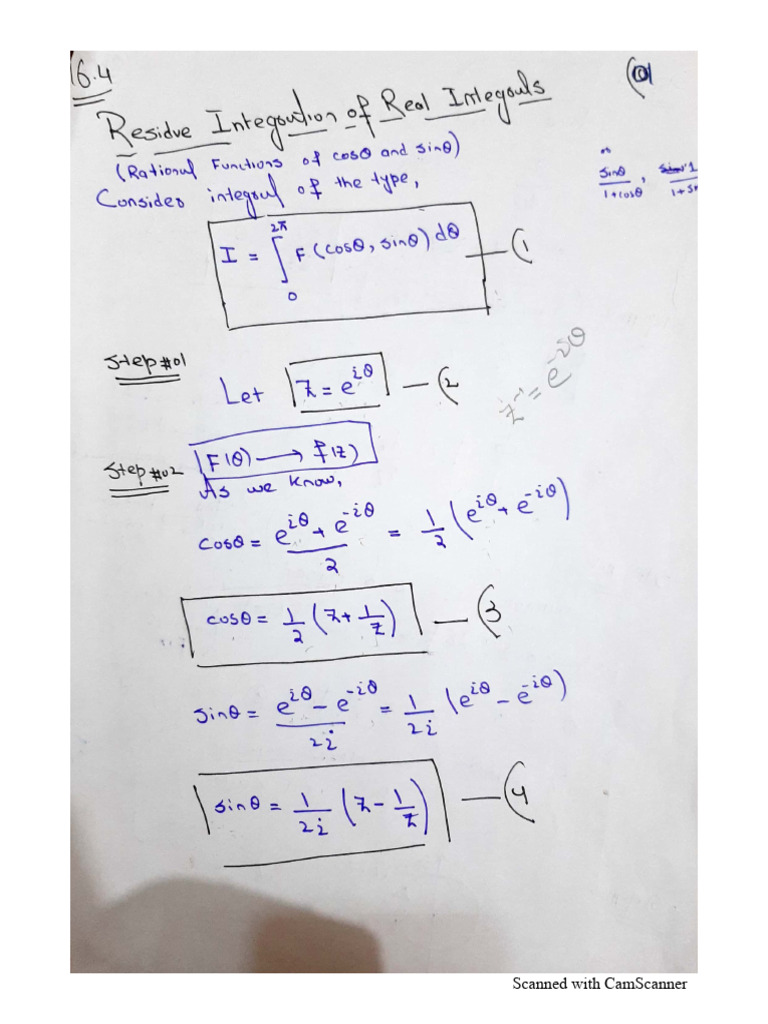 16.4
(01
Residue Integration of Real Integrals
(Rational Functions of cosθ and sinθ)
sinθ/(1+cosθ) ,
Consider integral of the type,
I = ∫₀^2π F (cosθ, sinθ) dθ —(1
Step#01
Let z = e^iθ —(2
z⁻¹ = e^-iθ
Step#02
F(θ) → f(z)
As we know,
cosθ = (e^iθ + e^-iθ)/2 = 1/2 (e^iθ + e^-iθ)
cosθ = 1/2 (z + 1/z) —(3
sinθ = (e^iθ - e^-iθ)/2i = 1/2i (e^iθ - e^-iθ)
sinθ = 1/2i (z - 1/z) —(4
Scanned with CamScanner